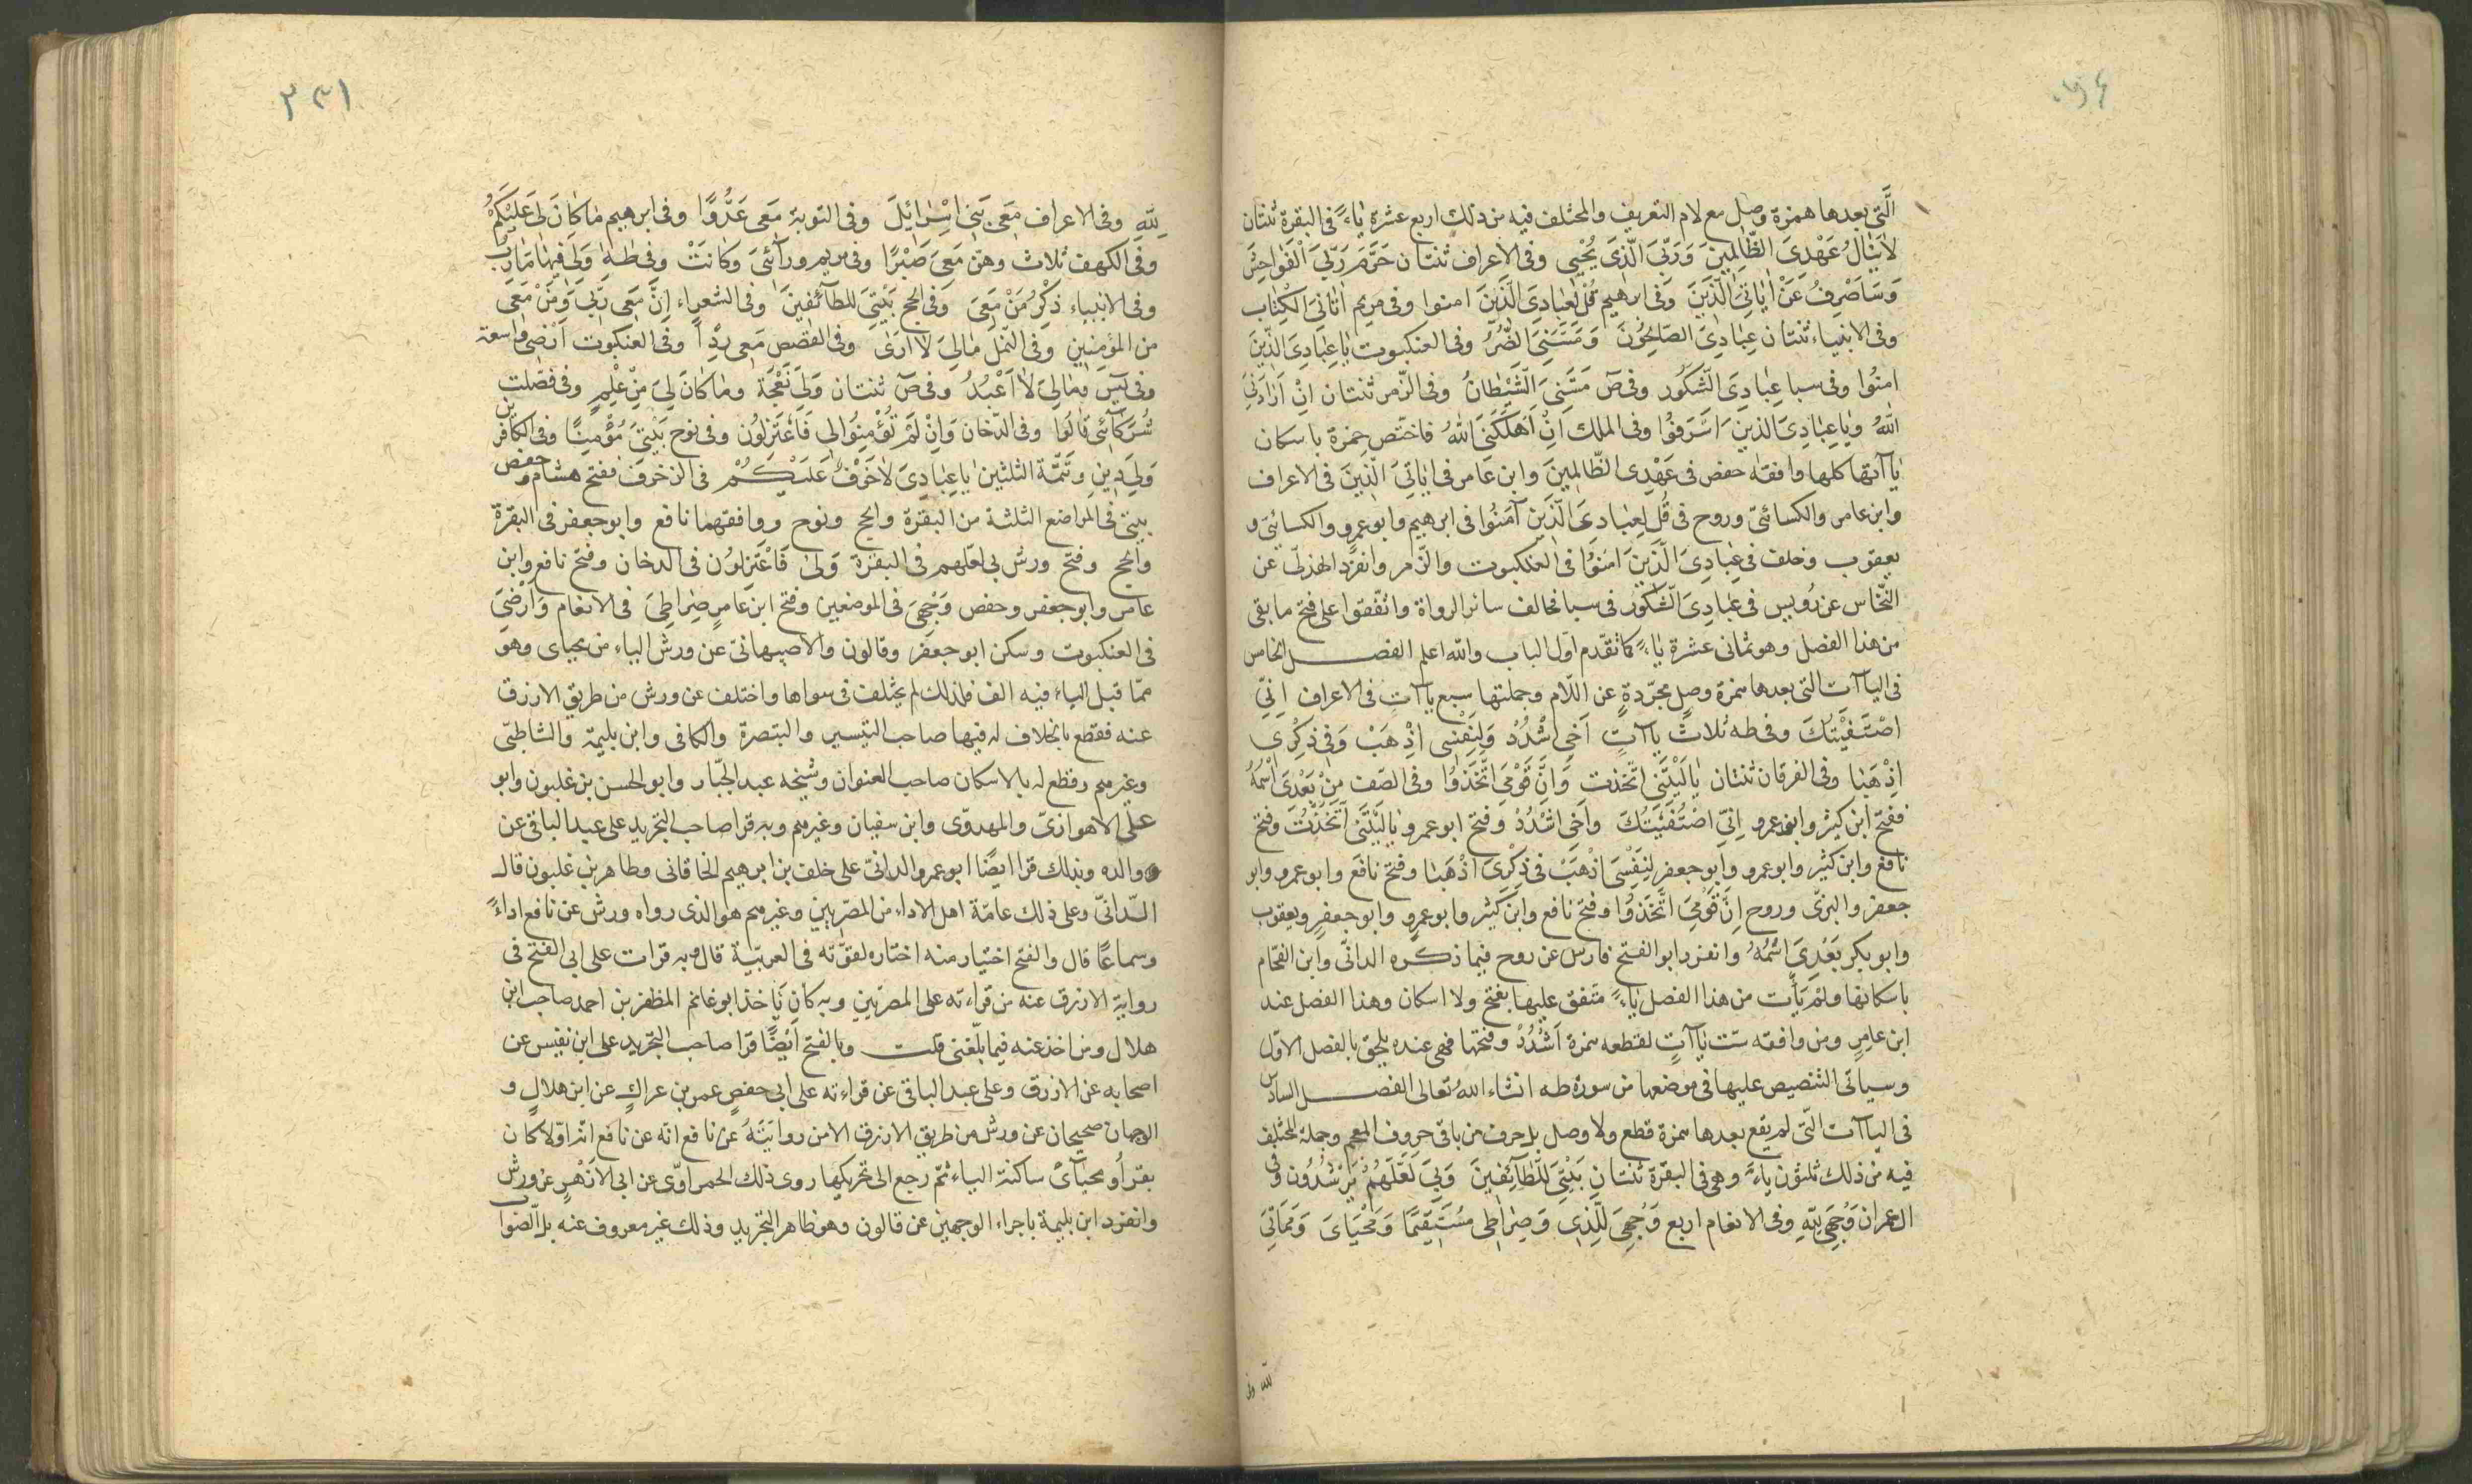 الَّتى بعدها همزة وصل مع لام التعريف والمختلف فيه من ذلك اربع عشرة ياءً فى البقرة ثنتان
لاينالُ عَهْدِىَ الظّالِمِينَ وَرَبِّىَ الَّذى يُحْيِى وفى الاعراف ثنتان حَرَّمَ رَبِّىَ الْفَوَاحِشَ
وَسَاَصْرِفُ عَنْ ايَاتِىَ الَّذِينَ وَفى ابرهيم قُلْ لِعِبَادِىَ الَّذِينَ امنوا وفى مريم اتَانِىَ الكِتَاب
وفى الانبياء ثنتان عِبَادِىَ الصّالِحُونَ وَمَسَّنِىَ الضُّرُّ وفى العنكبوت يَا عِبَادِىَ الَّذِينَ
امنُوا وفى سبا عِبَادِىَ الشَّكُور وفى صٓ مَسَّنِىَ الشَّيْطَانُ وفى الزّمر ثنتان اِنْ اَرَادَنِىَ
اللّٰهُ وَيَا عِبَادِىَ الذينَ اَسْرَفُوا وفى الملك اِنْ اَهْلَكَنِىَ اللّٰهُ فاختصّ حمزة باسكان
ياآتها كلها وافقه حفص فى عَهْدِى الظّالِمِينَ وابن عامر فى ايَاتِىَ الَّذِينَ فى الاعراف
وابن عامر والكسائىّ وروح فى قُل لِعِبَادِىَ الَّذِينَ آمَنُوا فى ابرهيم وابو عمرو والكسائىّ و
يعقوب وخلف فى عِبَادِىَ الَّذِينَ امَنُوا فى العنكبوت والزّمر وانفرد الهذلىّ عن
النّخّاس عن رُويس فى عِبَادِىَ الشَّكُورُ فى سبا فخالف سائر الرواة واتّفقوا على فتح ما بقى
من هذا الفصل وهو ثمانى عشرة ياءً كما تقدّم اوّل الباب والله اعلم الفصــل الخامس
فى الياآت التى بعدها همزة وصلٍ مجرّدةٍ عن اللّام وجملتها سبع ياآتٍ فى الاعراف اِنِّى
اصْطَفَيْتُكَ وفى طه ثلاثُ ياآتٍ اَخِى اشْدُدْ وَلِنَفْسِى اذْهَبْ وَفِى ذِكْرِى
اذْهَبَا وفى الفرقان ثنتان يَا لَيْتَنِى اتّخذت وَاِنَّ قَوْمِى اتَّخَذُوا وفى الصّف مِنْ بَعْدِىَ اسْمُهُ
ففتح ابن كثير وابو عمرو اِنِّىَ اصْطَفَيْتُكَ واَخِىَ اشْدُدْ وفتح ابو عمرو يَا لَيْتَنِىَ اتَّخَذْتُ وفتح
نافع وابن كثير وابو عمرو وابو جعفر لِنَفْسِىَ اذْهَبْ فى ذِكْرِىَ اذْهَبَا وفتح نافع وابو عمرو وابو
جعفر والبزّى وروح اِنَّ قَوْمِىَ اتَّخَذُوا وفتح نافع وابن كثير وابو عمرو وابو جعفرٍ ويعقوب
وابو بكر بَعْدِىَ اسْمُهُ وانفرد ابو الفتح فارس عن روح فيما ذكره الدانىّ وابن الفحّام
باسكانها ولَمْ يَأْت من هذا الفصل ياءً متّفق عليها بفتح ولا اسكان وهذا الفصل عند
ابن عامرٍ ومن وافقه ستّ ياآتٍ لقطعه همزة اَشْدُدْ وفتحها فهى عنده يلحق بالفصل الاوّل
وسياتى التنصيص عليها فى موضعها من سورة طه انشاء اللّٰهُ تعالى الفصــل السادس
فى الياآت الّتى لم يقع بعدها همزة قطع ولا وصل بل حرف من باقى حروف المعجم وجملة المختلف
فيه من ذلك ثلثون ياءً وهى فى البقرة ثنتانِ بَيْتِىَ لِلطّائِفِينَ وَبِىَ لَعَلَّهُمْ يَرْشُدُون وفى
ال عمران وَجْهِىَ لِلّٰهِ وفى الانعام اربع وَجْهِىَ لِلَّذِى وَصِرَاطِى مُسْتَقِيمًا وَمَحْيَاىَ وَمَمَاتِىَ
للّه وفى
٣٣١
لِلّٰهِ وفى الاعراف مَعِىَ بَنِى اِسْرَائِيلَ وفى التوبة مَعِى عَدُوًّا وفى ابرهيم مَا كَانَ لِى عَلَيْكُمْ
وفى الكهف ثلاث وهنّ مَعِىَ صَبْرًا وفى مريم ورآئىَ وَكانَتْ وفى طه وَلِىَ فِيهَا مَآرِبُ
وفى الانبياء ذِكْرُ مَنْ مَعِىَ وَفى الحج بَيْتِىَ للطآئفينَ وفى الشعراء اِنَّ مَعِى رَبِّى وَمَنْ مَعِى
من المؤمنِينِ وفى النّمل مَالِىَ لَا اَرَى وفى القصص مَعِى رِدْأً وفى العنكبوت اَرْضِى واسعة
وفى يٓسٓ وَمَا لِىَ لَا اَعْبُدُ وفى صٓ ثنتان وَلِىَ نَعْجَةٌ ومَا كَانَ لِىَ مِنْ عِلْمٍ وفى فصّلت
شُرَكَآئى قَالُوا وفى الدّخان وَاِنْ لَمْ تُؤْمِنُوا لِى فَاعْتَزِلُون وفى نوح بَيْتِىَ مُؤْمِنًا وفى الكافرين
وَلِىَ دِينِ وتتمّة الثلثين يَا عِبَادِىَ لَا خَوْفٌ عَلَيْكُمْ فى الزخرف ففتح هشام وحفص
بيتى فى المواضع الثلثة من البقرة والحج ونوح ووافقهما نافع وابو جعفر فى البقرة
والحج وفتح ورش بى لعلّهم فى البقرة وَلِى فَاعْتَزِلُون فى الدخان وفتح نافع وابن
عامر وابو جعفر وحفص وَجْهِىَ فى الموضعين وفتح ابن عامرٍ صِرَاطِىَ فى الانعام وَاَرْضِىَ
فى العنكبوت وسكن ابو جعفر وقالون والاصبهانىّ عن ورش الياء من محياى وهو
ممّا قبل الياء فيه الف فلذلك لم يختلف فى سواها واختلف عن ورش من طريق الازرق
عنه فقطع بالخلاف له فيها صاحب التيسير والتبصرة والكافى وابن بليمة والشاطبىّ
وغيرهم وقطع له بالاسكان صاحب العنوان وشيخه عبد الجبّار وابو الحسن بن غلبون وابو
على الاهوازىّ والمهدوّى وابن سفيان وغيرهم وبه قرا صاحب التجريد على عبد الباقى عن
والده وبذلك قرا ايضًا ابو عمرو الدانىّ على خلف بن ابرهيم الخاقانى وطاهر بن غلبون قال
الدّانىّ وعلى ذلك عامّة اهل الاداء من المصريين وغيرهم هو الذى رواه ورش عن نافع اداءً
وسماعًا قال والفتح اختيار منه اختاره لقوّته فى العربيّة قال وبه قرات على ابى الفتح فى
رواية الازرق عنه من قراءته على المصريين وبه كان يَأخذ ابو غانم المظفر بن احمد صاحب ابن
هلال ومن اخذ عنه فيما بلغنى قلت وبالفتح ايْضًا قرا صاحب التجريد على ابن نفيس عن
اصحابه عن الازرق وعلى عبد الباقى عن قراءته على ابى حفصٍ عمر بن عراكٍ عن ابن هلالٍ و
الوجهان صحيحان عن ورش من طريق الازرق الا من روايَتَهُ عن نافع انّه عن نافع انّه اوّلا كان
يقرأ ومحياىْ ساكنة الياء ثمّ رجع الى تحريكها روى ذلك الحمراوّى عن ابى الازْهرِ عن ورش
وانفرد ابن بليمة باجراء الوجهين عن قالون وهو ظاهر التجريد وذلك غير معروف عنه بل الصّواب